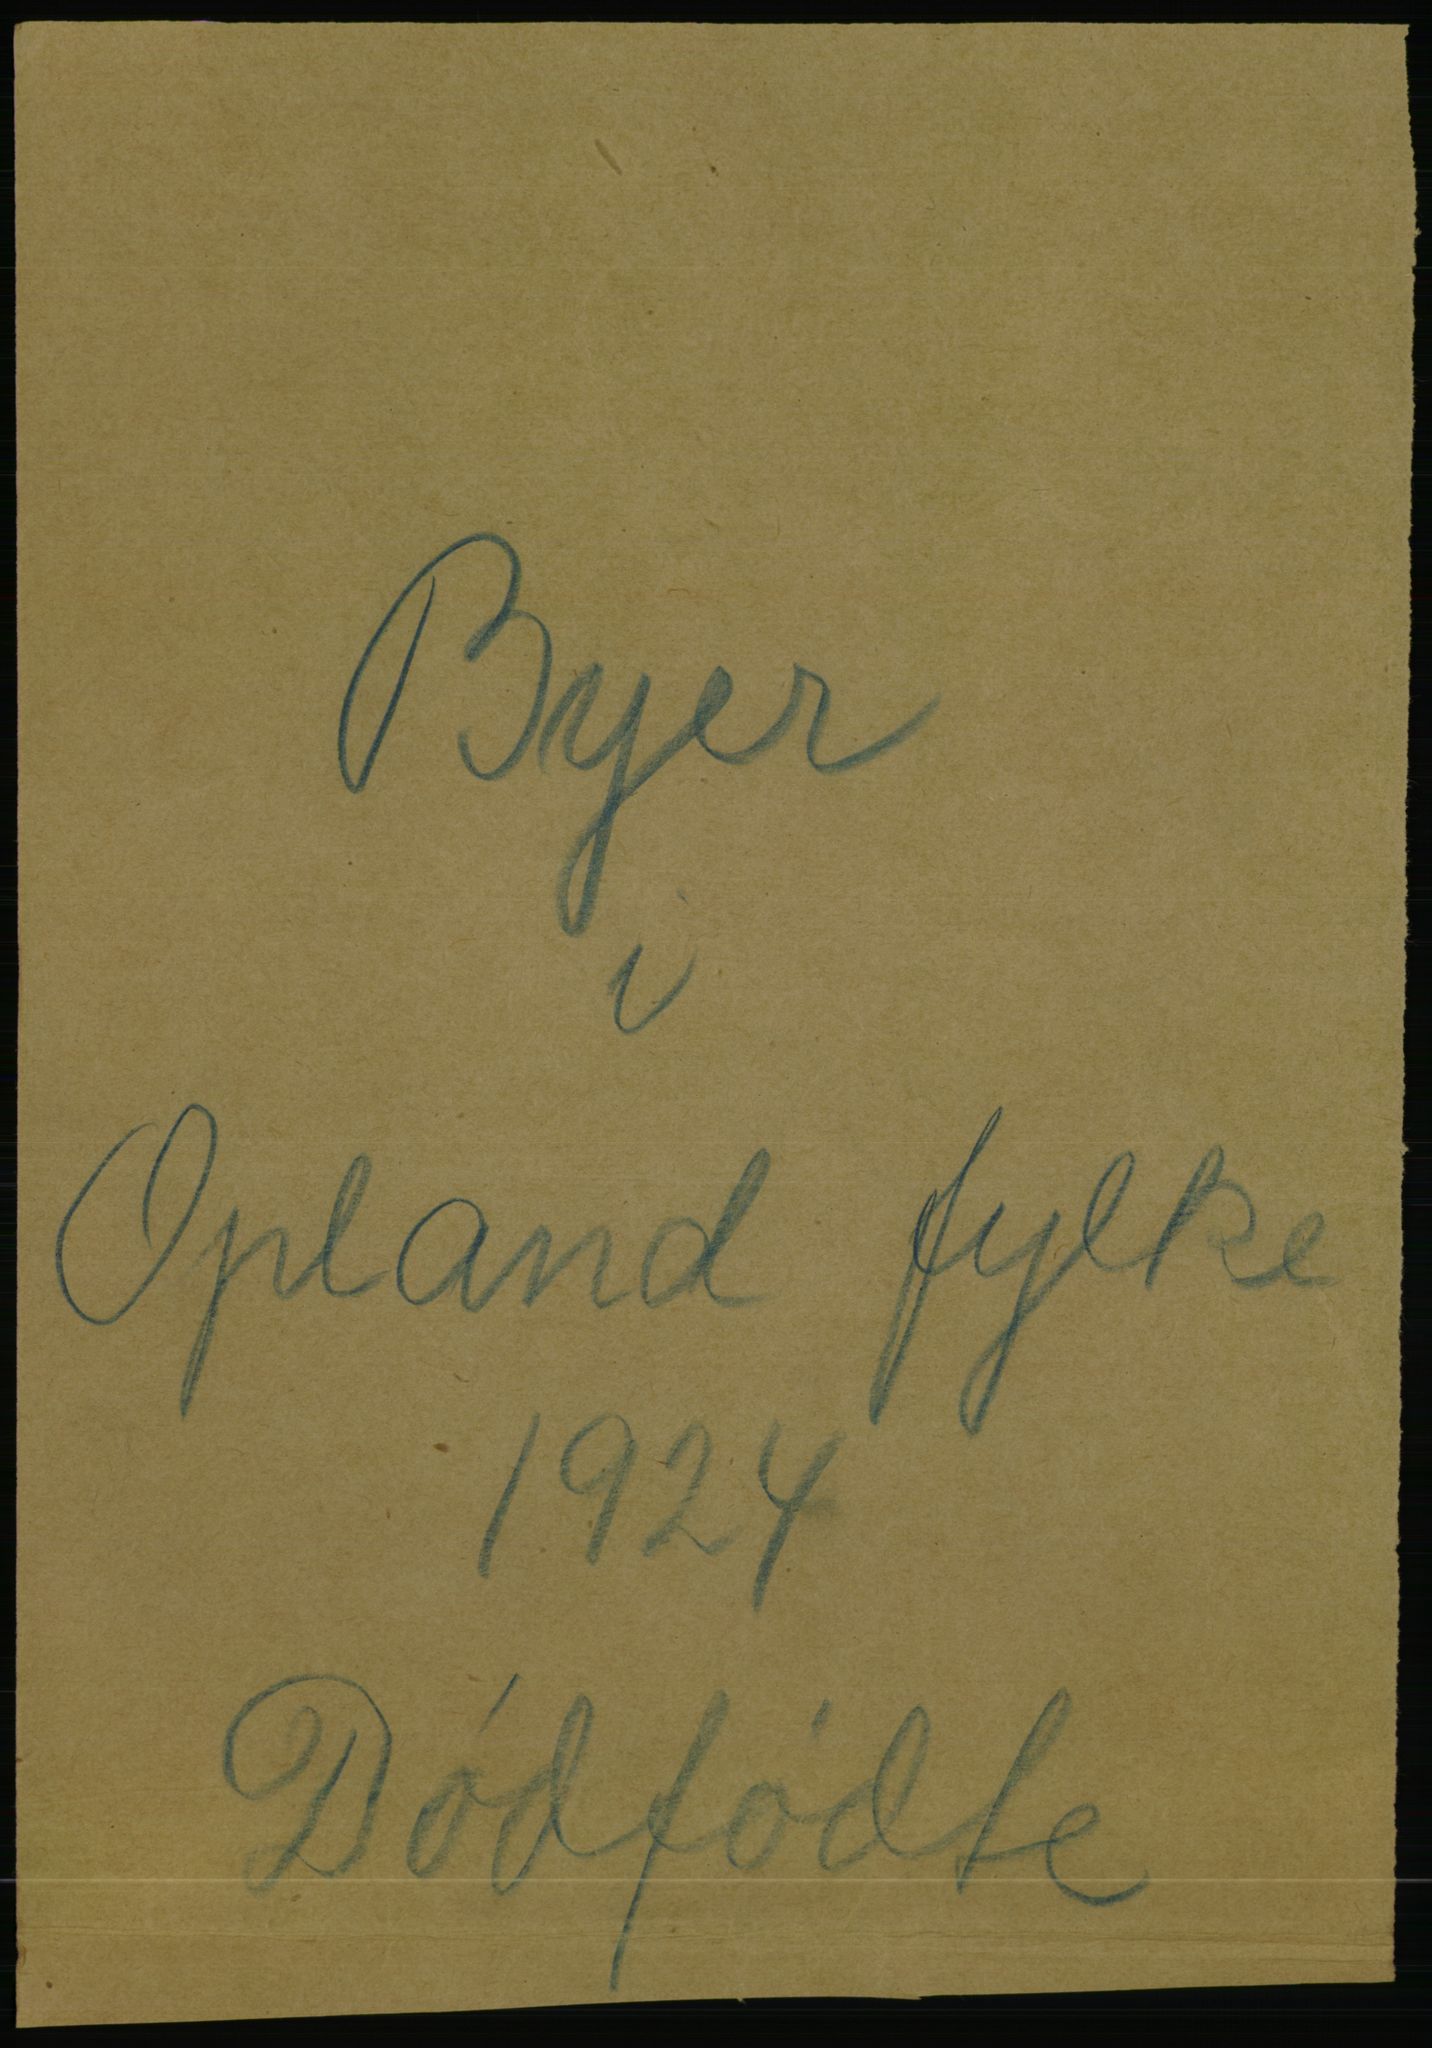 Byer
i
Opland fylke
1924
Dódfódte